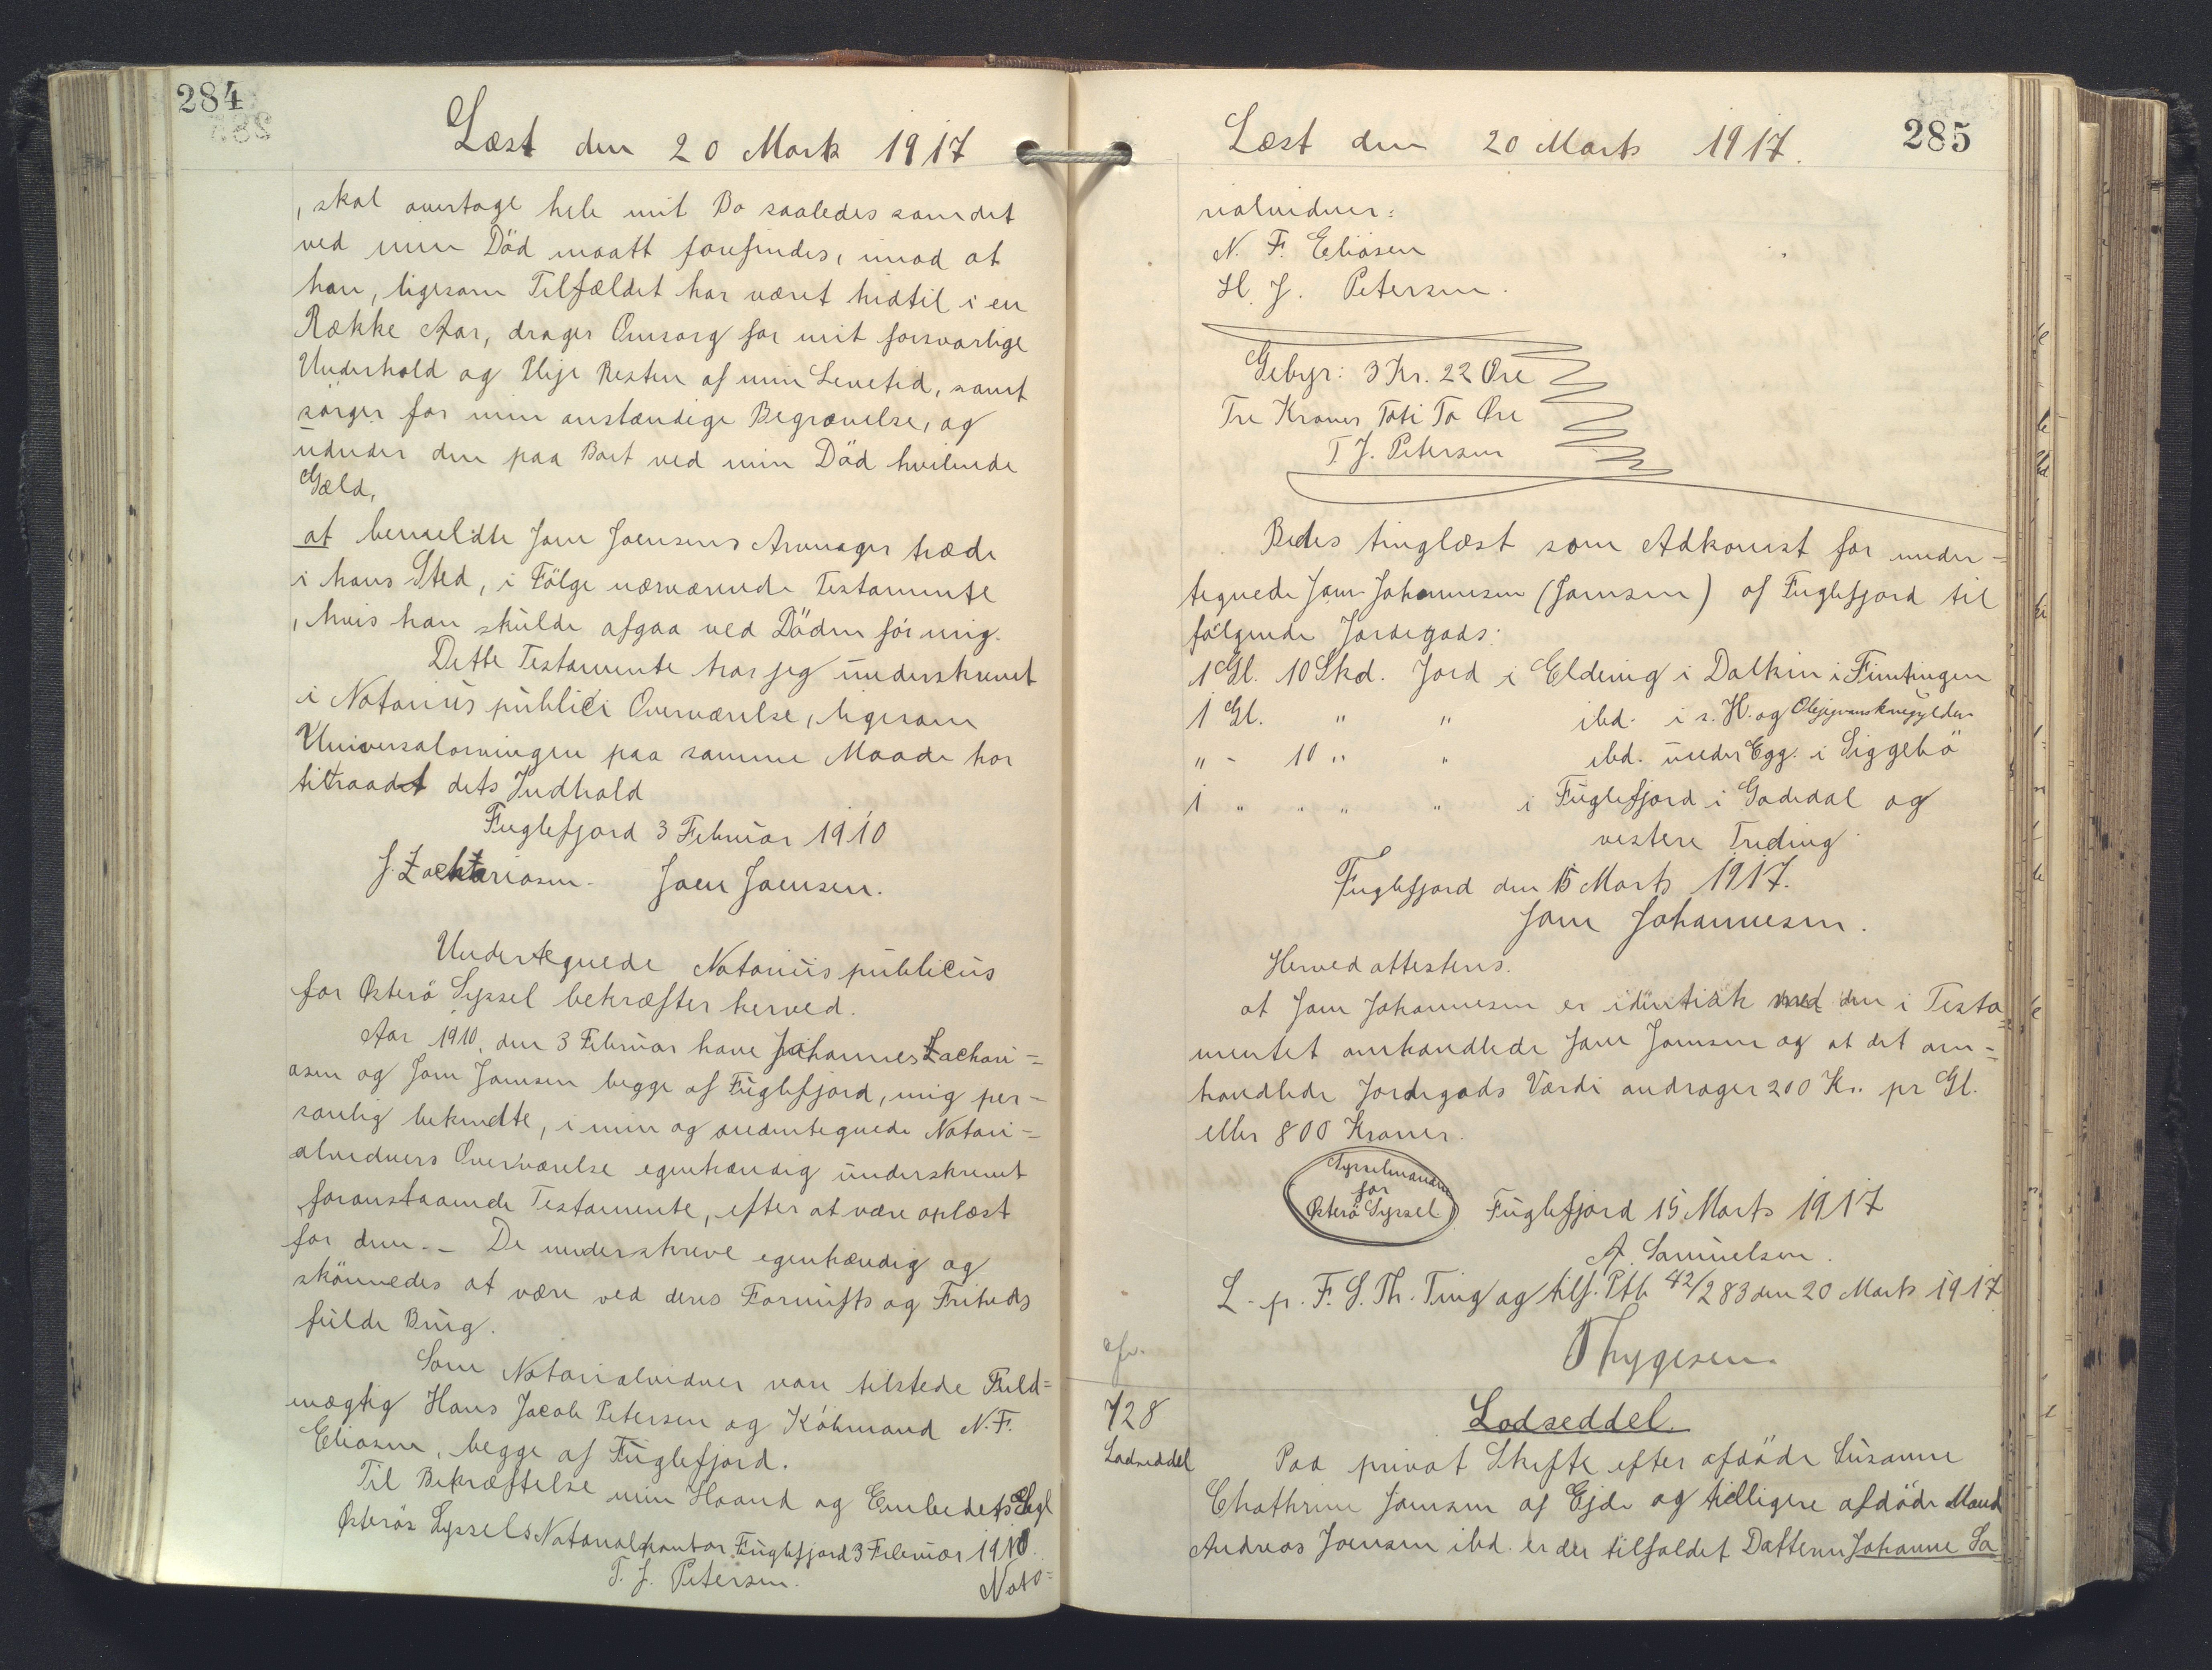 284
Læst den 20 Marts 1917
, skal overtage hele mit Bo saaledes som det
ved min Död maatt forefindes, imod at
han, ligesom Tilfældet har været hidtil i en
Række Aar, drager Omsorg for mit forsvarlige
Underhold og Pleje Resten af min Levetid, samt
sörger for min anstændige Begravelse, og
udreder den paa Boet ved min Död hvilende
Gæld,
at bemeldte Joen Joensens Arvinger træde
i hans Sted, i Fölge nærværende Testamente
, hvis han skulde afgaa ved Döden för mig.
Dette Testamente har jeg underskrevet
i Notarius publici Overværelse, ligesom
Universalarvingen paa samme Maade har
tiltraadt dets Indhold
Fuglefjord 3 Februar 1910
J. Zachariasen. Joen Joensen.
Undertegnede Notarius publicus
for Österö Syssel bekræfter herved.
Aar 1910, den 3 Februar have Johannes Zachari=
asen og Joen Joensen begge af Fuglefjord, mig per=
sonlig bekendte, i min og medundertegnede Notari=
alvidners Overværelse egenhændig underskrevet
foranstaaende Testamente, efter at være oplæst
for dem. - De underskreve egenhændig og
skönnedes at være ved deres Fornufts og Friheds
fulde Brug.
Som Notarialvidner vare tilstede Fuld=
mægtig Hans Jacob Petersen og Köbmand N. F.
Eliasen, begge af Fuglefjord.
Til Bekræftelse min Haand og Embedets Segl
Österös Syssels Notarialkontor Fuglefjord 3 Februar 1910.
T. J. Petersen.
Nota=
285
Læst den 20 Marts 1917.
rialvidner:
N. F. Eliasen
H. J. Petersen.
Gebyr: 3 Kr. 22 Øre
Tre Kroner Toti To Øre
T. J. Petersen
Bedes tinglæst som Adkomst for under=
tegnede Joen Johannesen (Joensen) af Fuglefjord til
fölgende Jordegods:
1 Gl. 10 Skd. Jord i Elderig i Dalken i Fimtingen
1 Gl. " " ibd. i s. H. og
" - 10 " " ibd. under Egg. i Siggebö
1 " " " " i Fuglefjord i Gadedal og
vestere Treding
Fuglefjord den 15 Marts 1917.
Joen Johannesen.
Herved attesteres.
at Joen Johannesen er identisk med den i Testa=
mentet omhandlede Joen Joensen og at det om=
handlede Jordegods Værdi andrager 200 Kr. pr Gl.
eller 800 Kroner.
Sysselmanden
for
Österö Syssel
Fuglefjord 15 Marts 1917
A. Samuelsen.
L. p. F. S. Th. Ting og tilf. Ptb 42/283 den 20 Marts 1917
Thygesen.
afv.
728
Lodseddel
Lodseddel.
Paa privat Skifte efter afdöde Susanne
Chathrine Joensen af Ejde og tidligere afdöde Mand
Andreas Joensen ibd. er der tilfaldet Datteren Johanne So=